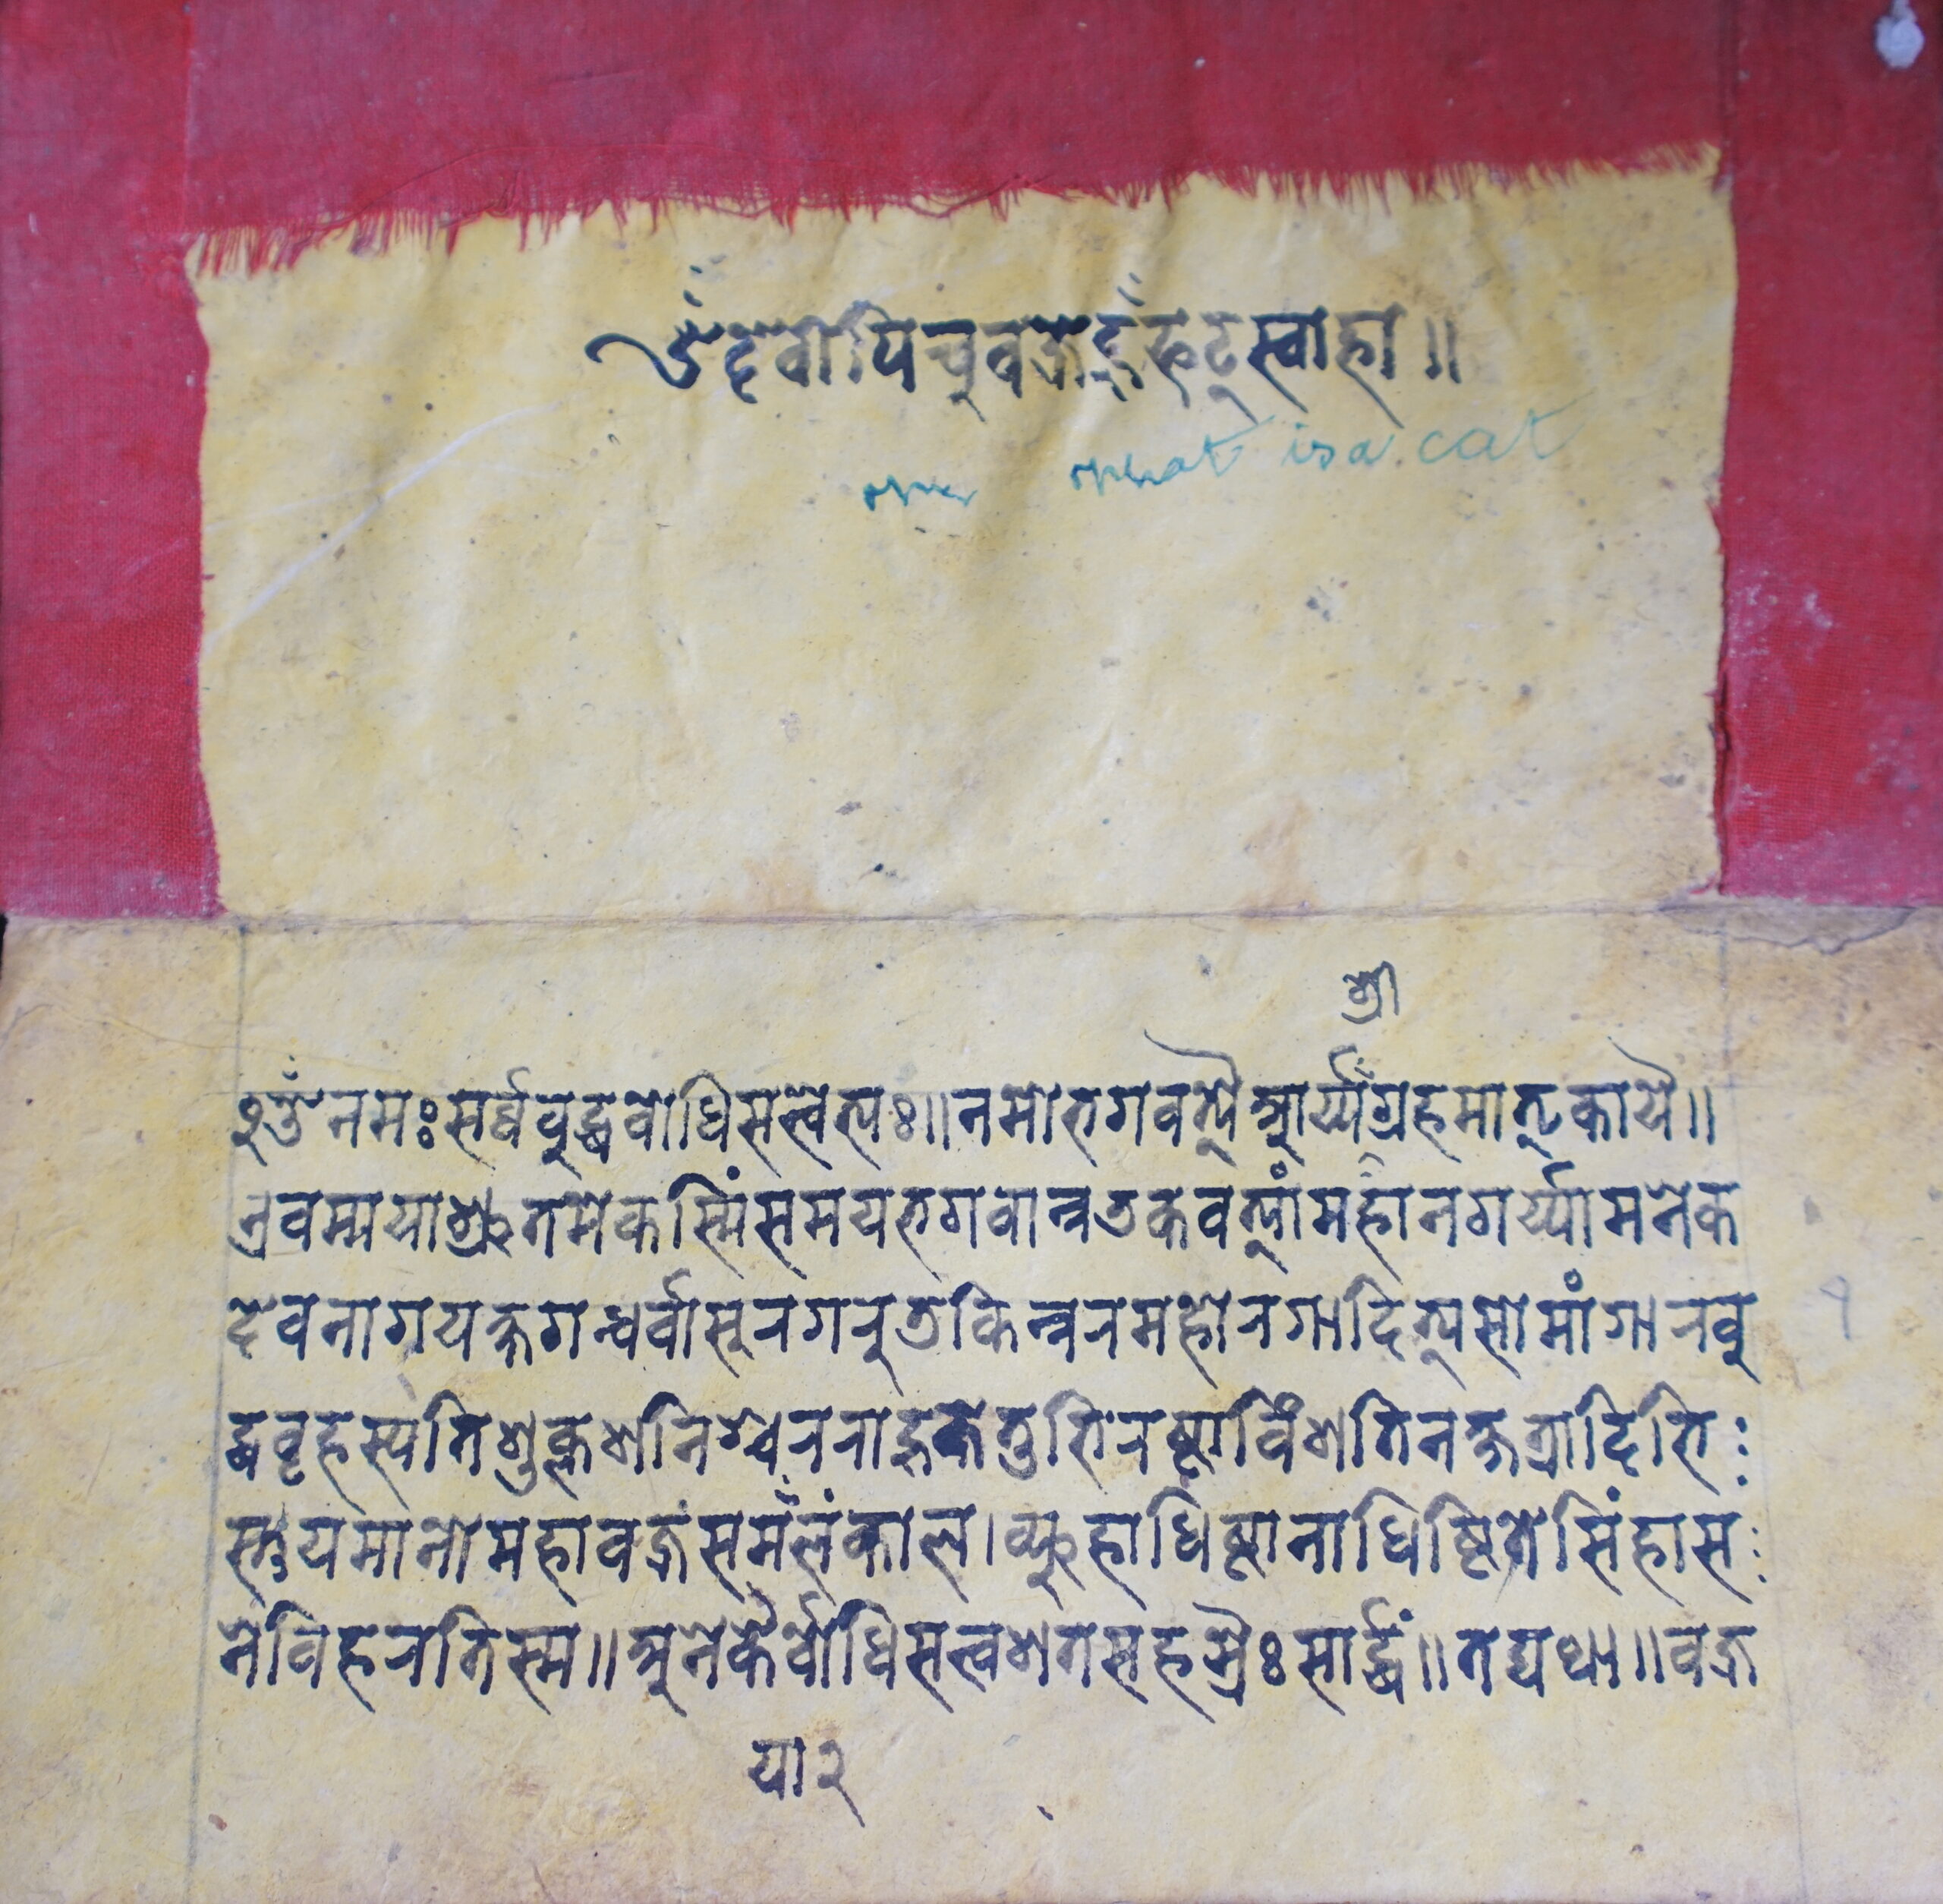 ॐ देवी पिचुवज्रे हूँ फट् स्वाहा ॥
what is a cat
श्री
ॐ नमः सर्व्वबुद्धबोधिसत्त्वेभ्यः ॥ नमो भगवत्यै आर्य्यग्रहमातृकायै ॥
एवम्मया श्रुतमेकस्मिंसमय भगवान्नडकवत्यां महानगर्य्यामनेक
देवनागयक्षगन्धर्वासुरगरुडकिन्नरमहोरगादित्यसोमांगारबु
द्धबृहस्पतिशुक्लशनिश्चेरराहुकेतुभिरष्टाविंशतिनक्षत्रादिभिः
स्तुयमानो महावज्रंसमलंकाल । व्यूहाधिष्ठानाधिष्ठिते सिंहास
ने विहरति स्म ॥ अनेकैर्बोधिसत्त्वशतसहस्रैः सार्द्धं ॥ तद्यथा ॥ वज्र
या २